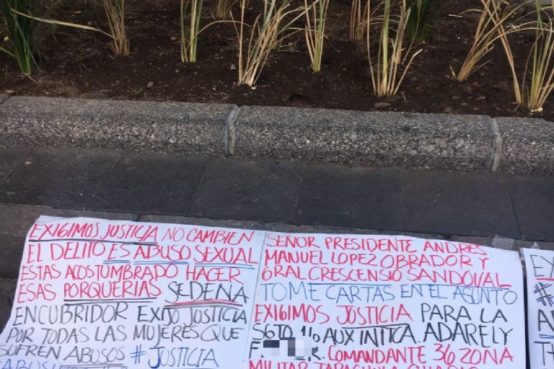 EXIGIMOS JUSTICIA NO CAMBIEN
EL DELITO ES ABUSO SEXUAL
ESTAS ACOSTUMBRADO HACER
ESAS PORQUERIAS SEDENA
ENCUBRIDOR EXIJO JUSTICIA
POR TODAS LAS MUJERES QUE
SUFREN ABUSOS #JUSTICIA
SEÑOR PRESIDENTE ANDRES
MANUEL LOPEZ OBRADOR Y
GRAL CRESCENSIO SANDOVAL
TOME CARTAS EN EL ASUNTO
EXIGIMOS JUSTICIA PARA LA
SGTO 1/o AUX INTCA. ADARELY
COMANDANTE 36 ZONA
MILITAR TAPACHULA CHIAPAS